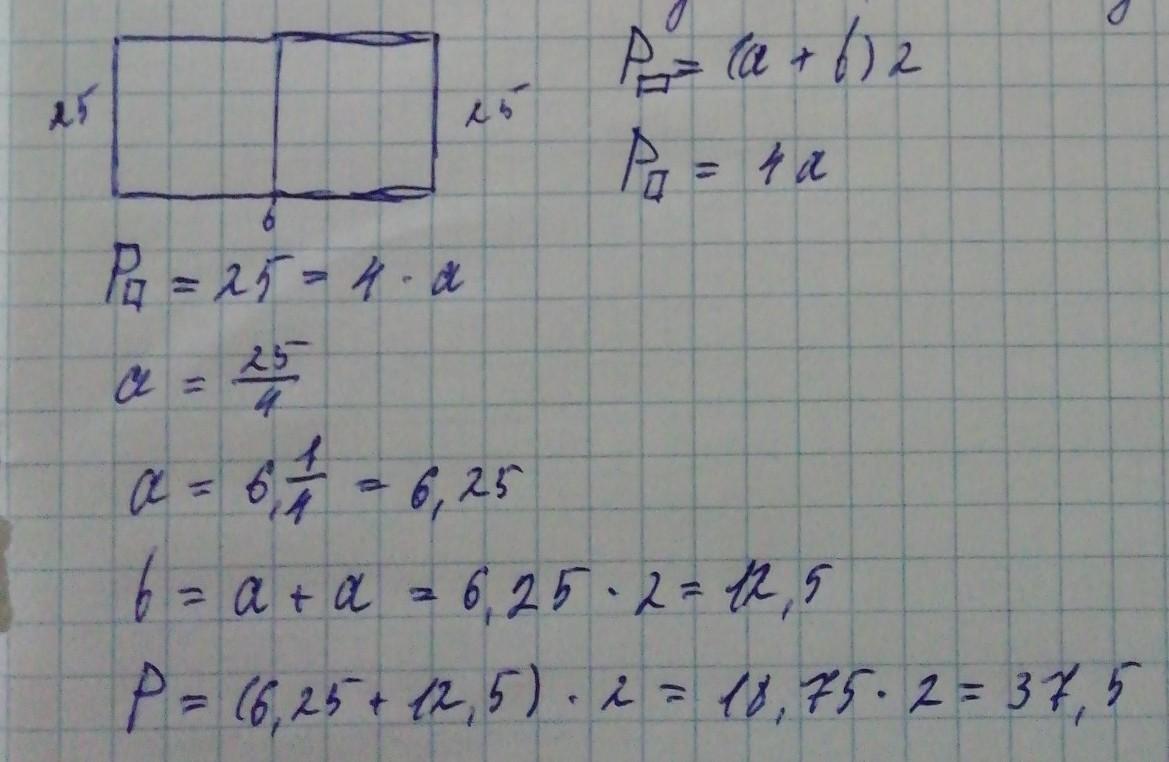 25
25
б
P▭ = (a + b) 2
P□ = 4a
P□ = 25 = 4 · a
a = 25/4
a = 6,1/4 = 6,25
b = a + a = 6,25 · 2 = 12,5
P = (6,25 + 12,5) · 2 = 18,75 · 2 = 37,5